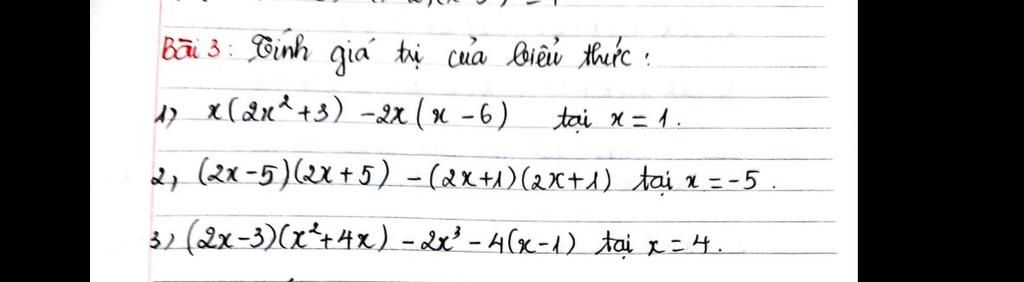 Bài 3: Tính giá trị của biểu thức:
1) x(2x²+3) -2x(x-6) tại x = 1.
2, (2x-5)(2x+5) -(2x+1)(2x+1) tại x = -5.
3) (2x-3)(x²+4x) - 2x³ - 4(x-1) tại x = 4.